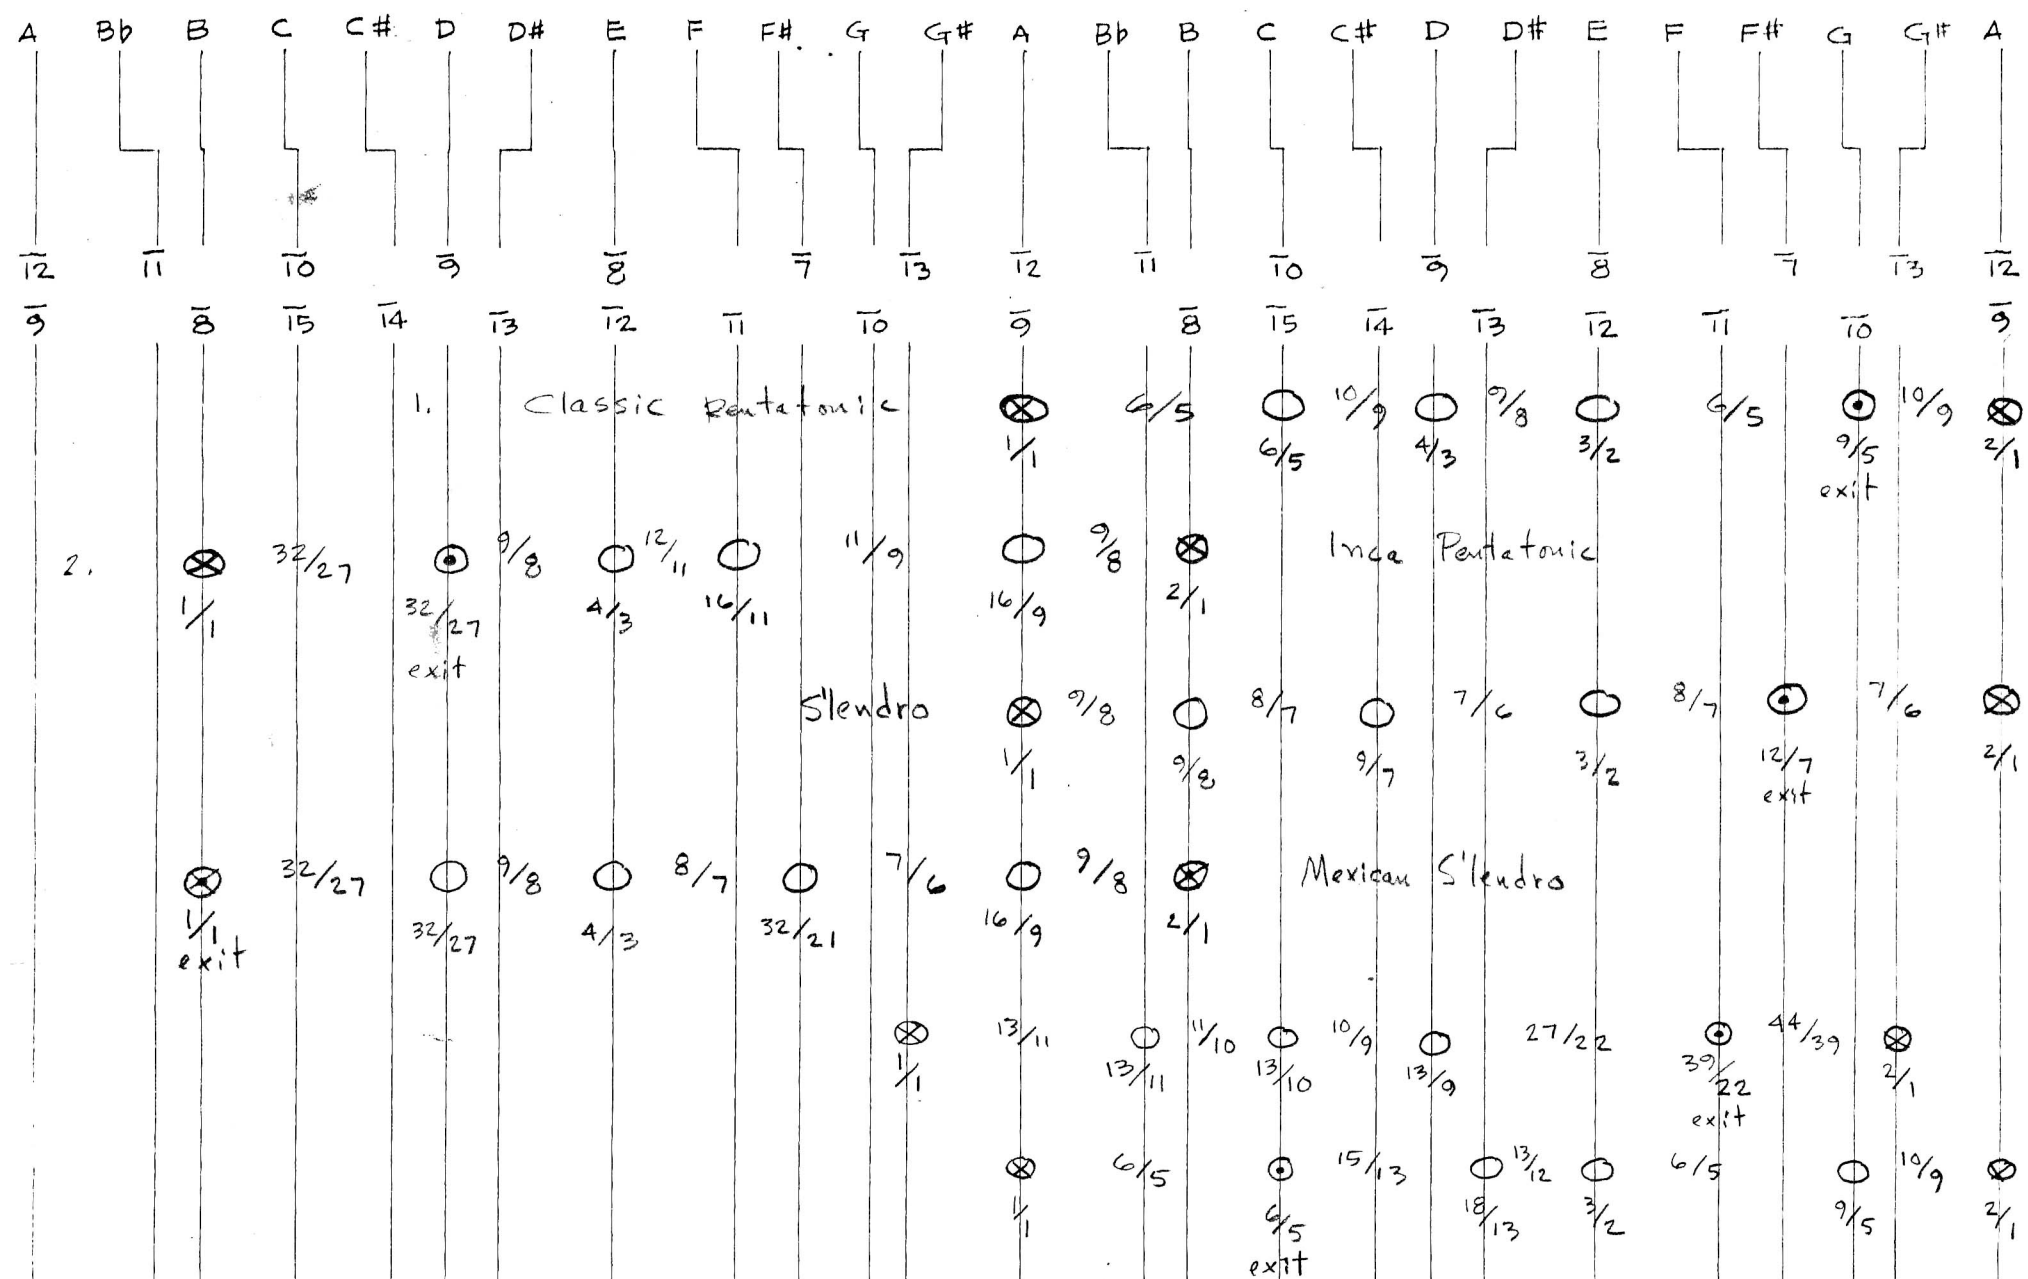 A Bb B C C# D D# E F F# G G# A Bb B C C# D D# E F F# G G# A
12 11 10 9 8 7 13 12 11 10 9 8 7 13 12
9 8 15 14 13 12 11 10 9 8 15 14 13 12 11 10 9
1. Classic Pentatonic 6/5 10/9 9/8 6/5 10/9
1/1 6/5 4/3 3/2 9/5 2/1
exit
2. 32/27 9/8 12/11 11/9 9/8 Inca Pentatonic
1/1 32/27 4/3 16/11 16/9 2/1
exit
S'lendro 9/8 8/7 7/6 8/7 7/6
1/1 9/8 9/7 3/2 12/7 2/1
exit
32/27 9/8 8/7 7/6 9/8 Mexican S'lendro
1/1 32/27 4/3 32/21 16/9 2/1
exit
13/11 11/10 10/9 27/22 44/39
1/1 13/11 13/10 13/9 39/22 2/1
exit
6/5 15/13 13/12 6/5 10/9
1/1 6/5 18/13 3/2 9/5 2/1
exit